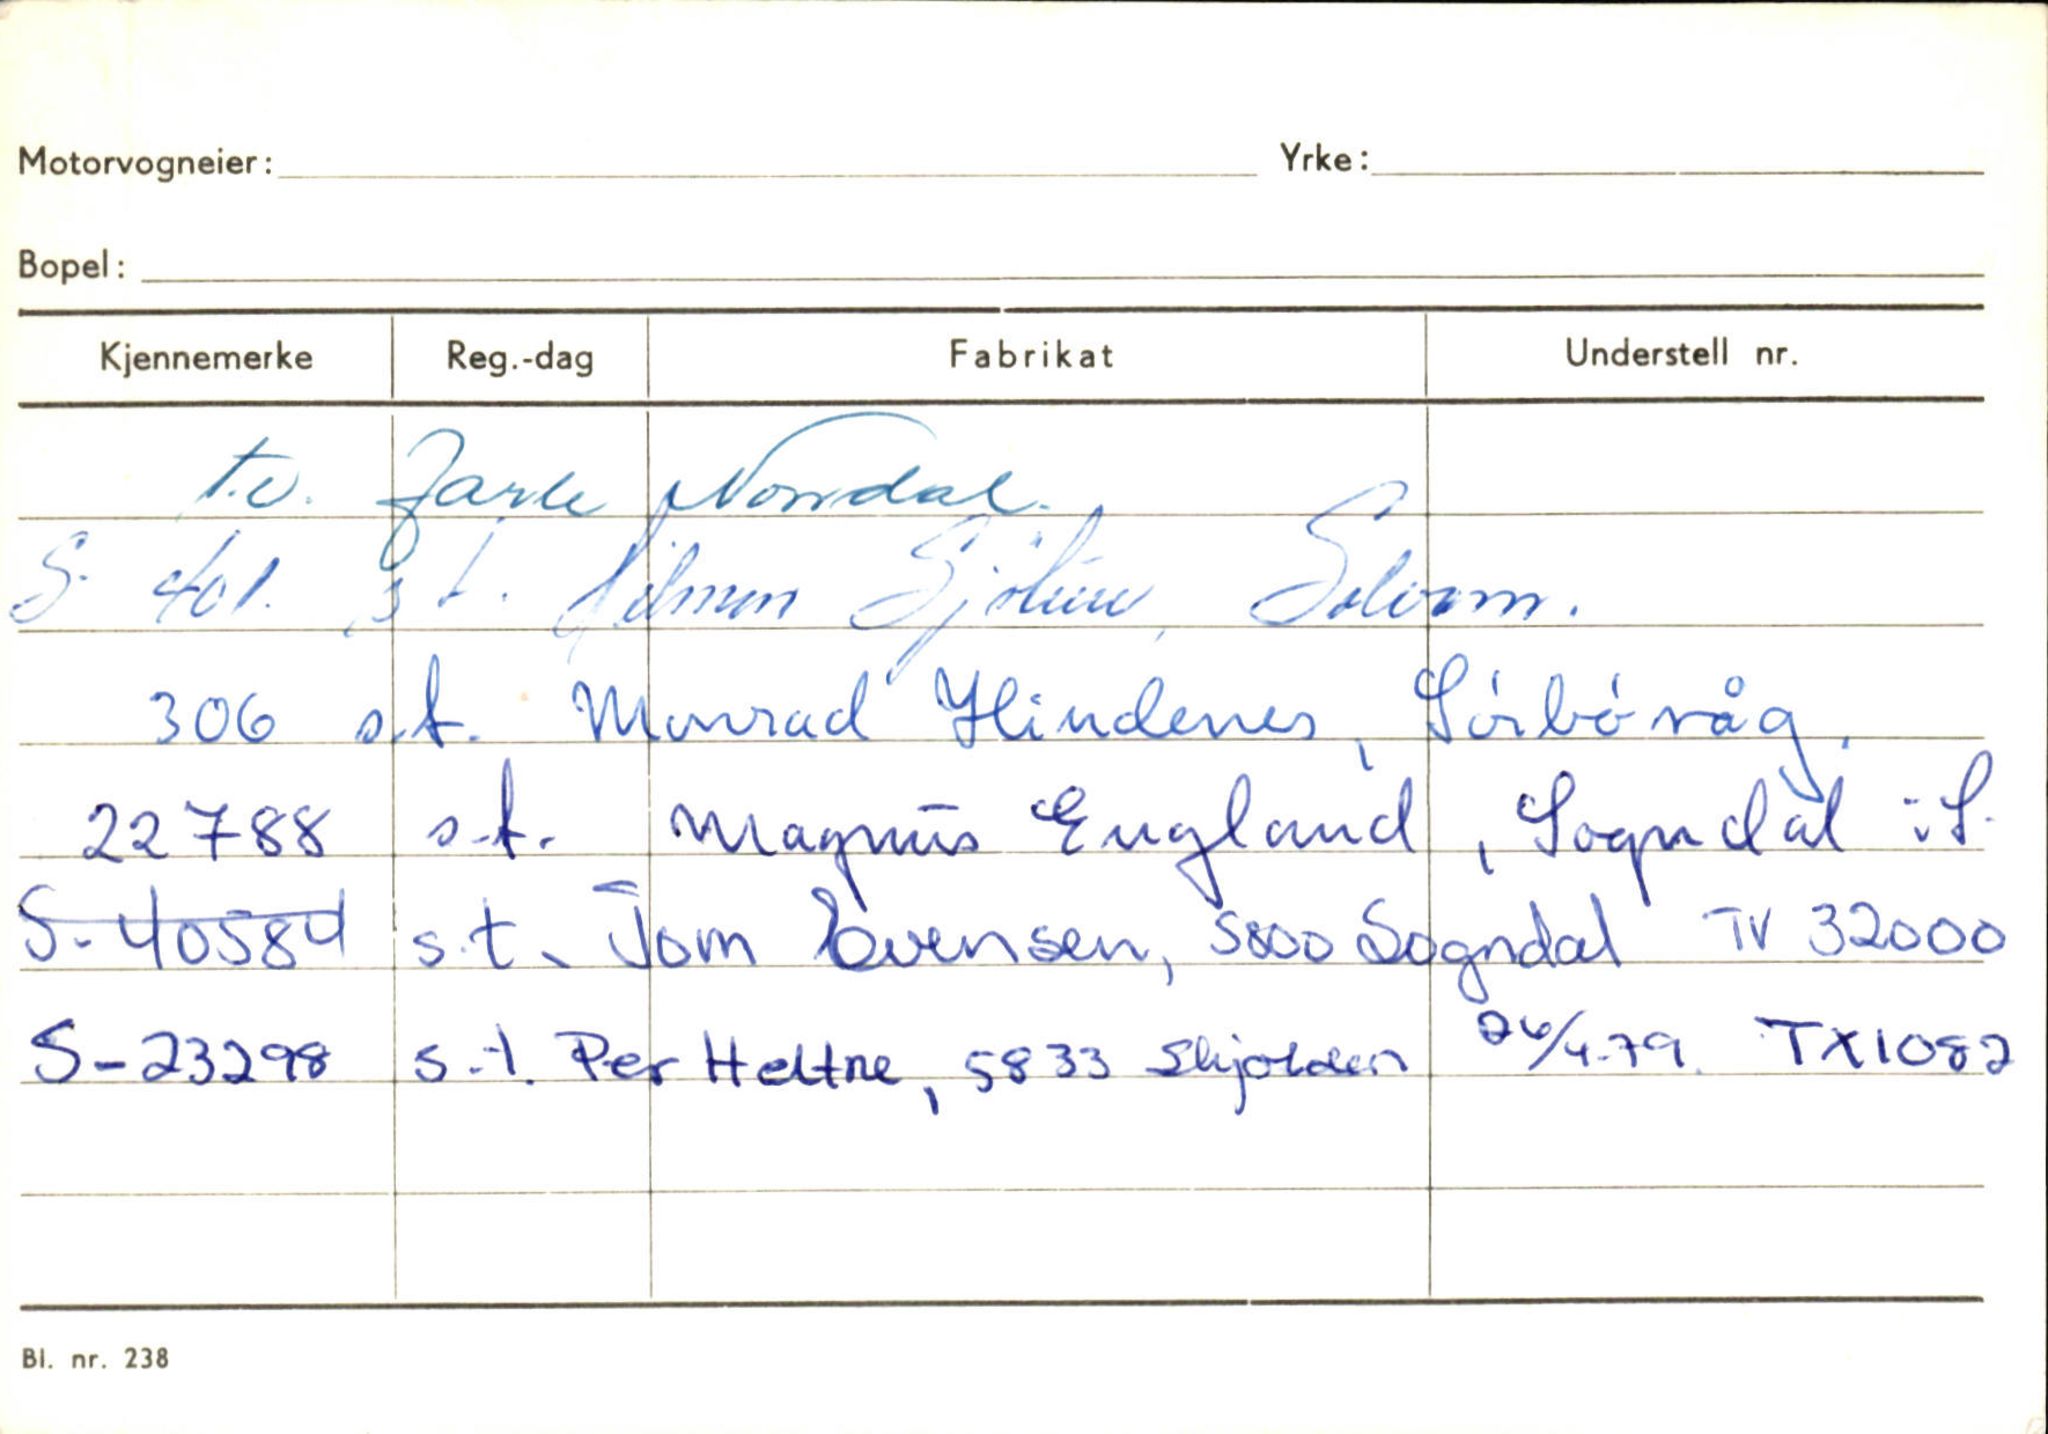 Motorvogneier: Yrke:
Bopel:
Kjennemerke Reg.-dag Fabrikat Understell nr.
t.v. Jarle Norrdal.
S- 401. s.t. Solvorn.
306 s.t. Monrad Hindenes, Sørbøvåg.
22788 s.t. Magnus England, Sogndal i S.
S-40584 s.t. Tom Evensen, 5800 Sogndal TV 32000
S-23298 s.t. Per Heltne, 5833 Skjolden 26/4-79. TX1082
Bl. nr. 238